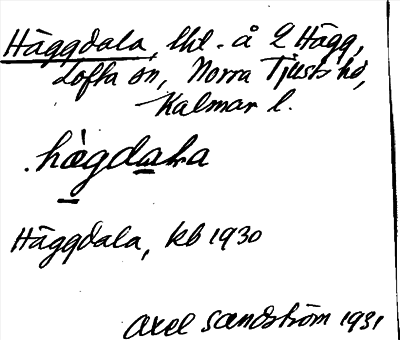 Häggdala, lht. å 2 Hägg,
Lofta sn, Norra Tjusts hd,
Kalmar l.
hägdala
Häggdala, kb 1930
Axel Sandström 1931